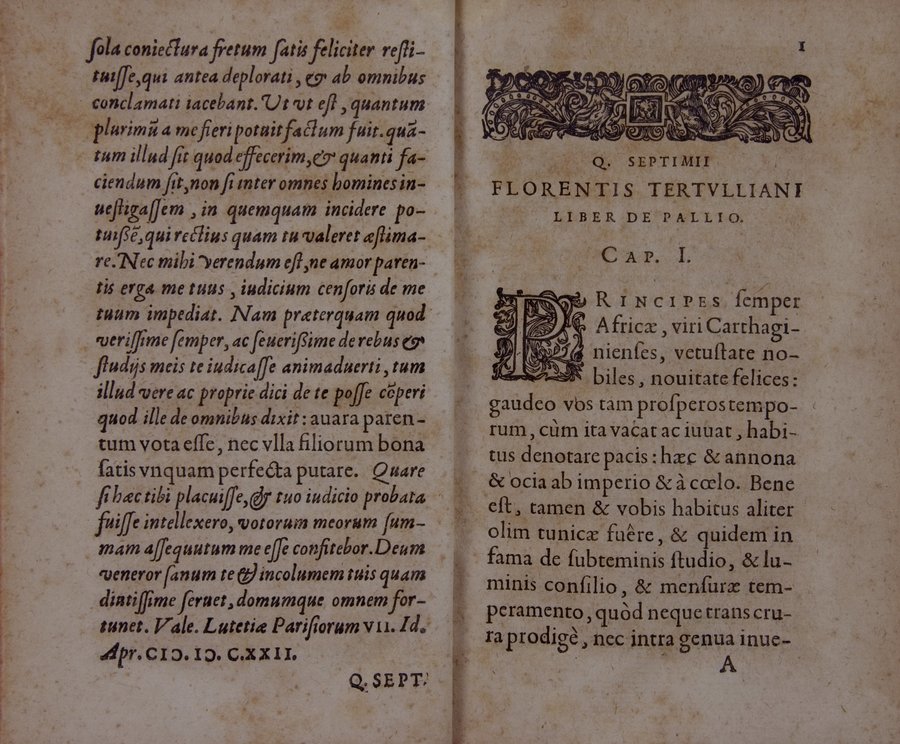 sola coniectura fretum satis feliciter resti-
tuisse, qui antea deplorati, & ab omnibus
conclamati iacebant. Ut vt est, quantum
plurimũ a me fieri potuit factum fuit. quã-
tum illud sit quod effecerim, & quanti fa-
ciendum sit, non si inter omnes homines in-
uestigassem, in quemquam incidere po-
tuissẽ, qui rectius quam tu valeret æstima-
re. Nec mihi verendum est, ne amor paren-
tis erga me tuus, iudicium censoris de me
tuum impediat. Nam præterquam quod
verissime semper, ac seuerissime de rebus &
studijs meis te iudicasse animaduerti, tum
illud vere ac proprie dici de te posse cõperi
quod ille de omnibus dixit: auara paren-
tum vota esse, nec vlla filiorum bona
satis vnquam perfecta putare. Quare
si hæc tibi placuisse, & tuo iudicio probata
fuisse intellexero, votorum meorum sum-
mam assequutum me esse confitebor. Deum
veneror sanum te & incolumem tuis quam
diutissime seruet, domumque omnem for-
tunet. Vale. Lutetiæ Parisiorum VII. Id.
Apr. CIↃ. IↃ. C.XXII.
Q. SEPT.
1
Q. SEPTIMII
FLORENTIS TERTVLLIANI
LIBER DE PALLIO.
CAP. I.
PRINCIPES semper
Africæ, viri Carthagi-
nienses, vetustate no-
biles, nouitate felices:
gaudeo vos tam prosperos tempo-
rum, cùm ita vacat ac iuuat, habi-
tus denotare pacis: hæc & annona
& ocia ab imperio & à cœlo. Bene
est, tamen & vobis habitus aliter
olim tunicæ fuêre, & quidem in
fama de subteminis studio, & lu-
minis consilio, & mensuræ tem-
peramento, quòd neque trans cru-
ra prodigè, nec intra genua inue-
A